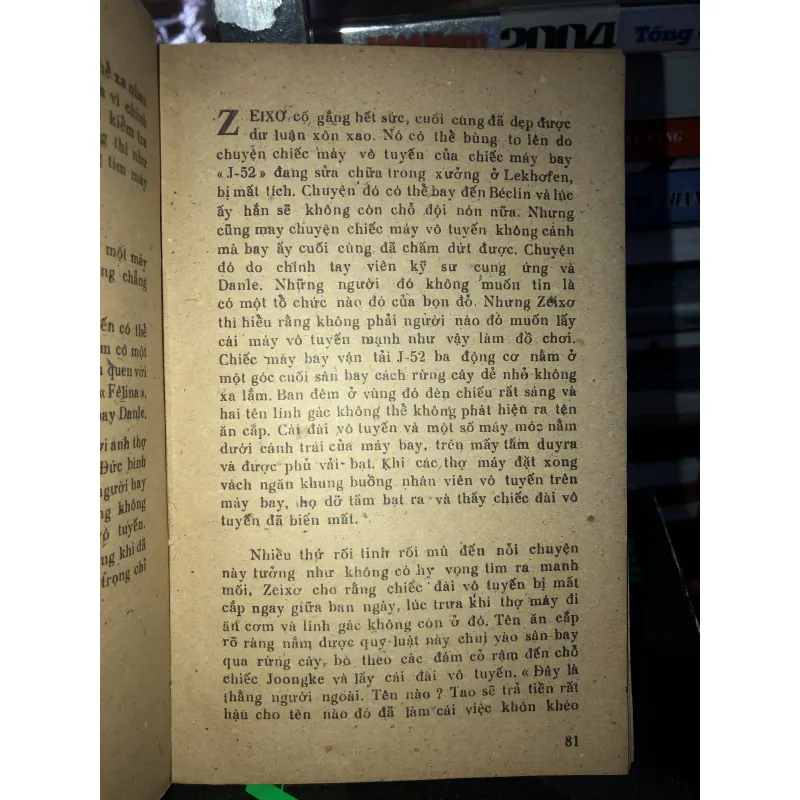 2004
Tổng
ố xa nhau
a vì chính
kiểm tra
ng thì như
tìm máy
một máy
ng chẳng
ến có thể
m có một
quen với
« Fêlina»,
bay Danle.
ời ảnh thợ
Đức bình
người bay
ng không
vô tuyến.
ng khi đã
trọng chỉ
ZEIXƠ cố gắng hết sức, cuối cùng đã dẹp được
dư luận xôn xao. Nó có thể bùng to lên do
chuyện chiếc máy vô tuyến của chiếc máy bay
«J-52» đang sửa chữa trong xưởng ở Lekhofen,
bị mất tích. Chuyện đó có thể bay đến Béclin và lúc
ấy hắn sẽ không còn chỗ đội nón nữa. Nhưng
cũng may chuyện chiếc máy vô tuyến không cánh
mà bay ấy cuối cùng đã chấm dứt được. Chuyện
đó do chính tay viên kỹ sư cung ứng và
Danle. Những người đó không muốn tin là
có một tổ chức nào đó của bọn đỏ. Nhưng Zeixơ
thì hiểu rằng không phải người nào đó muốn lấy
cái máy vô tuyến mạnh như vậy làm đồ chơi.
Chiếc máy bay vận tải J-52 ba động cơ nằm ở
một góc cuối sân bay cách rừng cây dẻ nhỏ không
xa lắm. Ban đêm ở vùng đó đèn chiếu rất sáng và
hai tên lính gác không thể không phát hiện ra tên
ăn cắp. Cái đài vô tuyến và một số máy móc nằm
dưới cánh trái của máy bay, trên mấy tấm duyra
và được phủ vải bạt. Khi các thợ máy đặt xong
vách ngăn khung buồng nhân viên vô tuyến trên
máy bay, họ dỡ tấm bạt ra và thấy chiếc đài vô
tuyến đã biến mất.
Nhiều thứ rối tinh rối mù đến nỗi chuyện
này tưởng như không có hy vọng tìm ra manh
mối, Zeixơ cho rằng chiếc đài vô tuyến bị mất
cắp ngay giữa ban ngày, lúc trưa khi thợ máy đi
ăn cơm và lính gác không còn ở đó. Tên ăn cắp
rõ ràng nắm được quy luật này chui vào sân bay
qua rừng cây, bò theo các đám cỏ rậm đến chỗ
chiếc Joongke và lấy cái đài vô tuyến. « Đây là
thằng người ngoài. Tên nào ? Tao sẽ trả tiền rất
hậu cho tên nào đó đã làm cái việc khôn khéo
81